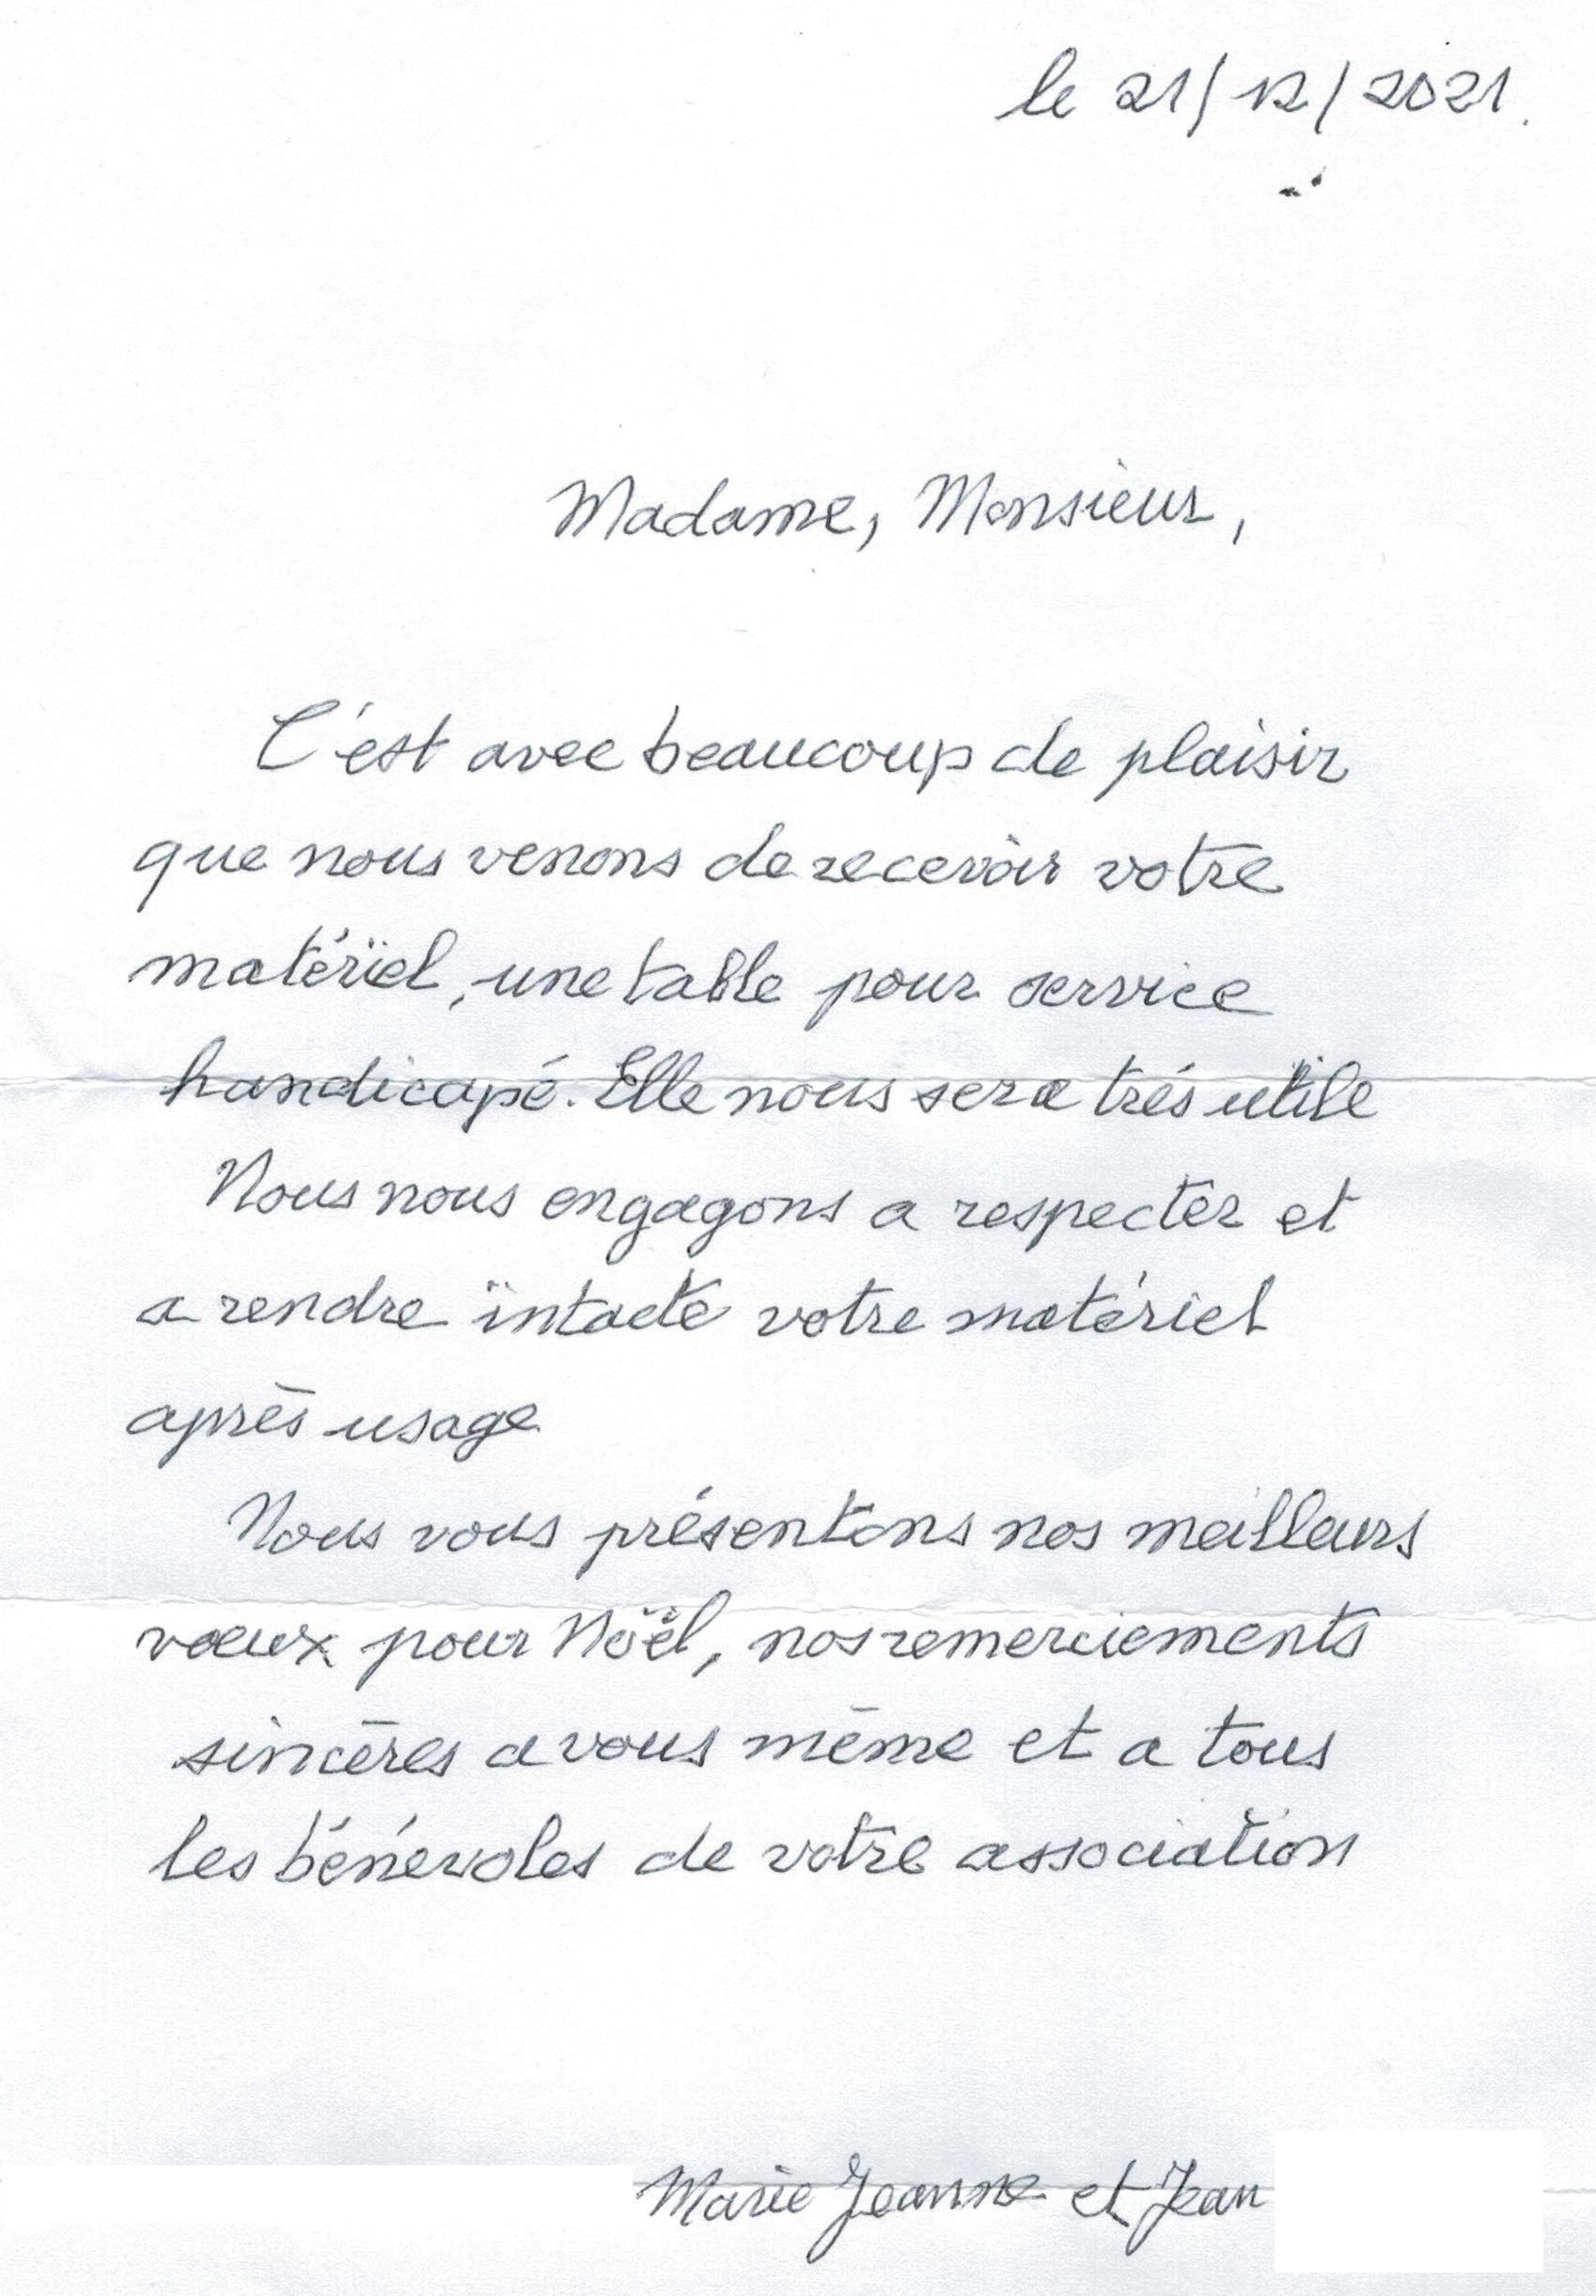 le 21/12/2021.
Madame, Monsieur,
C'est avec beaucoup de plaisir
que nous venons de recevoir votre
matériel, une table pour service
handicapé. Elle nous sera trés utile
Nous nous engagons a respecter et
a rendre intacte votre matériel
après usage
Nous vous présentons nos meilleurs
voeux pour Noël, nos remerciements
sincères a vous même et a tous
les bénévoles de votre association
Marie Jeanne et Jean